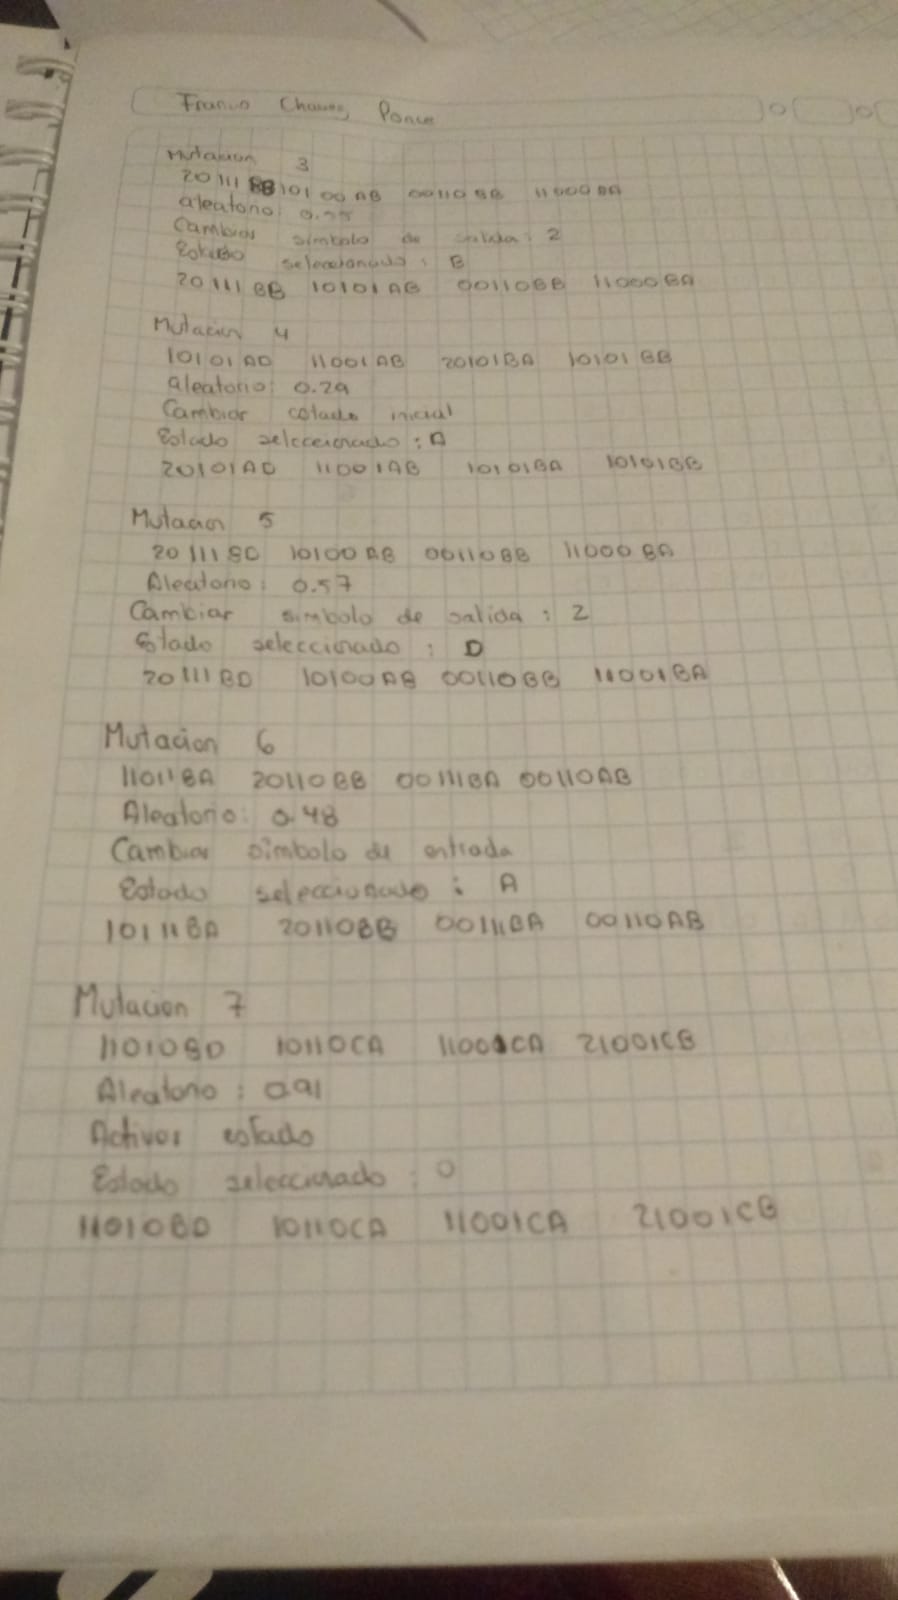 Franco Chavez Ponce
Mutacion 3
20111BB 10100AB 00110BB 11000BA
aleatorio:
Cambiar simbolo de salida: 2
Estado seleccionado: B
20111BB 10101AB 00110BB 11000BA
Mutacion 4
10101AD 11001AB 20101BA 10101BB
aleatorio: 0.29
Cambiar estado inicial
Estado seleccionado: A
20101AD 11001AB 10101BA 10101BB
Mutacion 5
20111BD 10100AB 00110BB 11000BA
Aleatorio: 0.57
Cambiar simbolo de salida: 2
Estado seleccionado: D
20111BD 10100AB 00110BB 11001BA
Mutacion 6
11011BA 20110BB 00111BA 00110AB
Aleatorio: 0.48
Cambiar simbolo de entrada
Estado seleccionado: A
10111BA 20110BB 00111BA 00110AB
Mutacion 7
11010BD 10110CA 11001CA 21001CB
Aleatorio: 0.91
Activar estado
Estado seleccionado: 0
11010BD 10110CA 11001CA 21001CB